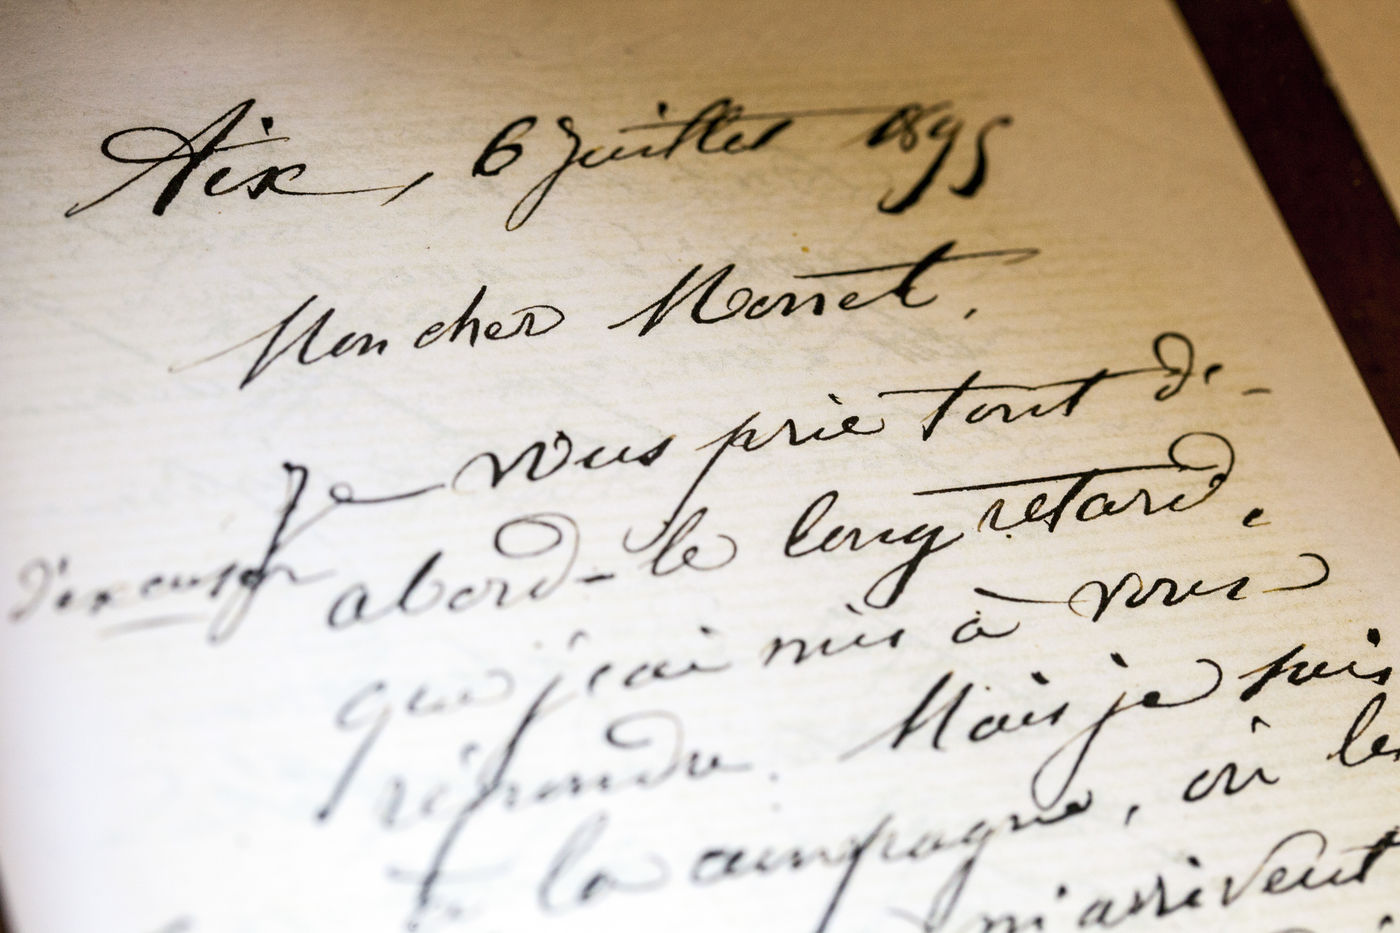 Aix, 6 Juillet 1895
Mon cher Monet,
Je vous prie tout d'-
abord le long retard,
d'excuser
que j'ai mis à vous
répondre. Mais je suis
à la campagne, où les
m'arrivent